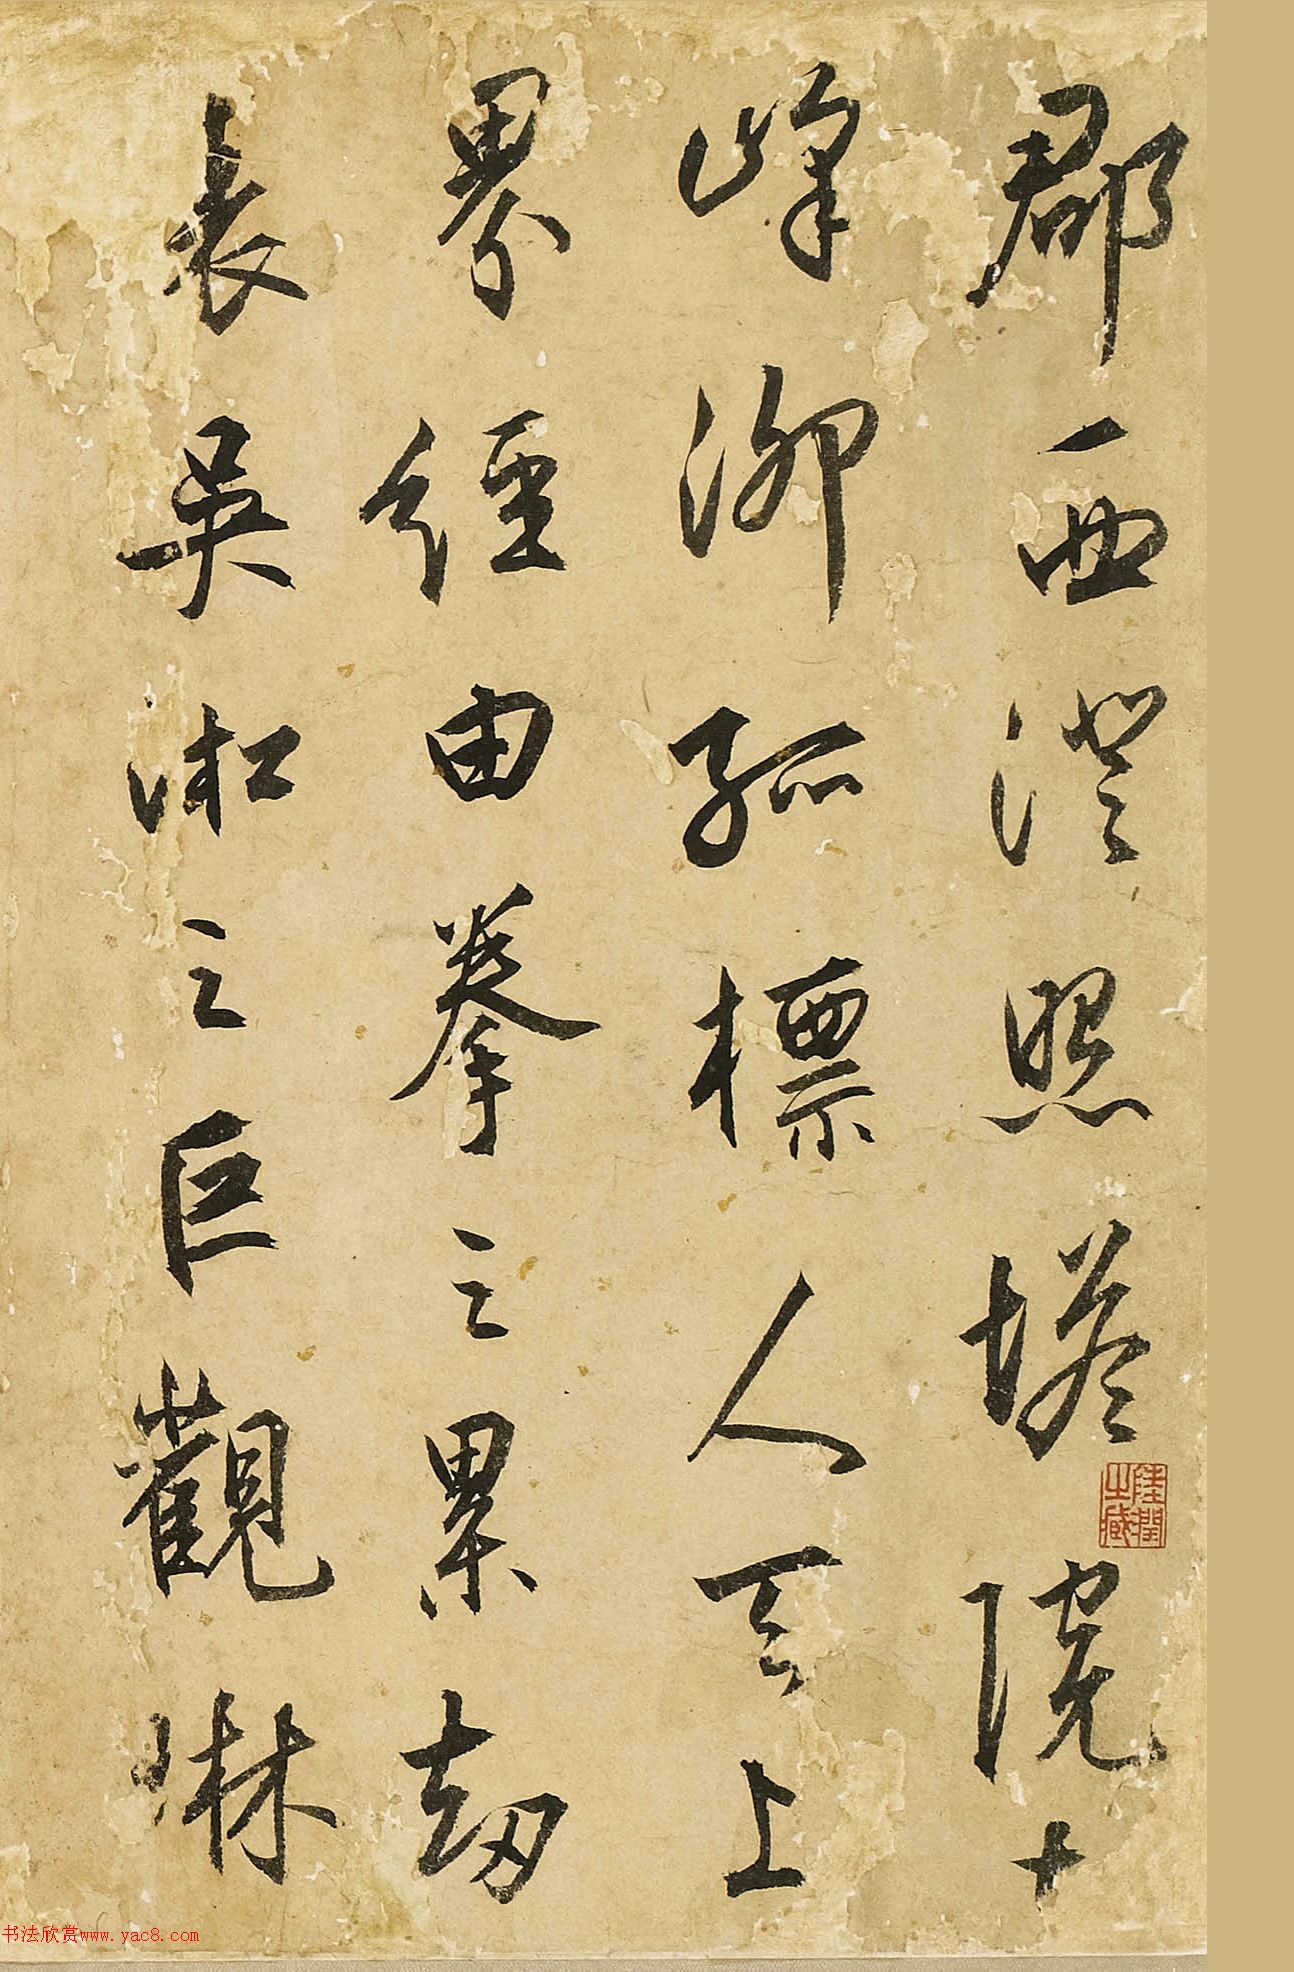 郡西澄照塔院十
峰泖孤標人天上
界經由拳之累劫
表吳淞之巨觀
陸潤之藏
书法欣赏www.yac8.com